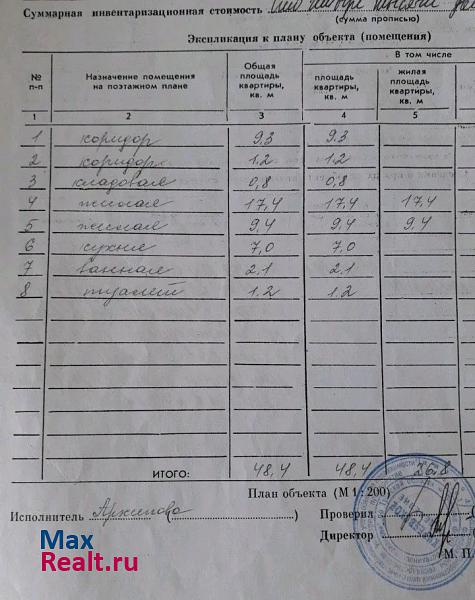 Суммарная инвентаризационная стоимость Сто четыре тысячи
(сумма прописью)
Экспликация к плану объекта (помещения)
№ п-п
Назначение помещения на поэтажном плане
Общая площадь квартиры, кв. м
В том числе
площадь квартиры, кв. м
жилая площадь квартиры, кв. м
1 2 3 4 5
1 коридор 9,3 9,3
2 коридор 1,2 1,2
3 кладовая 0,8 0,8
4 жилая 17,4 17,4 17,4
5 жилая 9,4 9,4 9,4
6 кухня 7,0 7,0
7 ванная 2.1 2.1
8 туалет 1.2 1.2
ИТОГО: 48,4 48,4 26,8
План объекта (М 1 : 200)
Исполнитель Архипова ( ) Проверил
Директор
М. П.
Max
Realt.ru